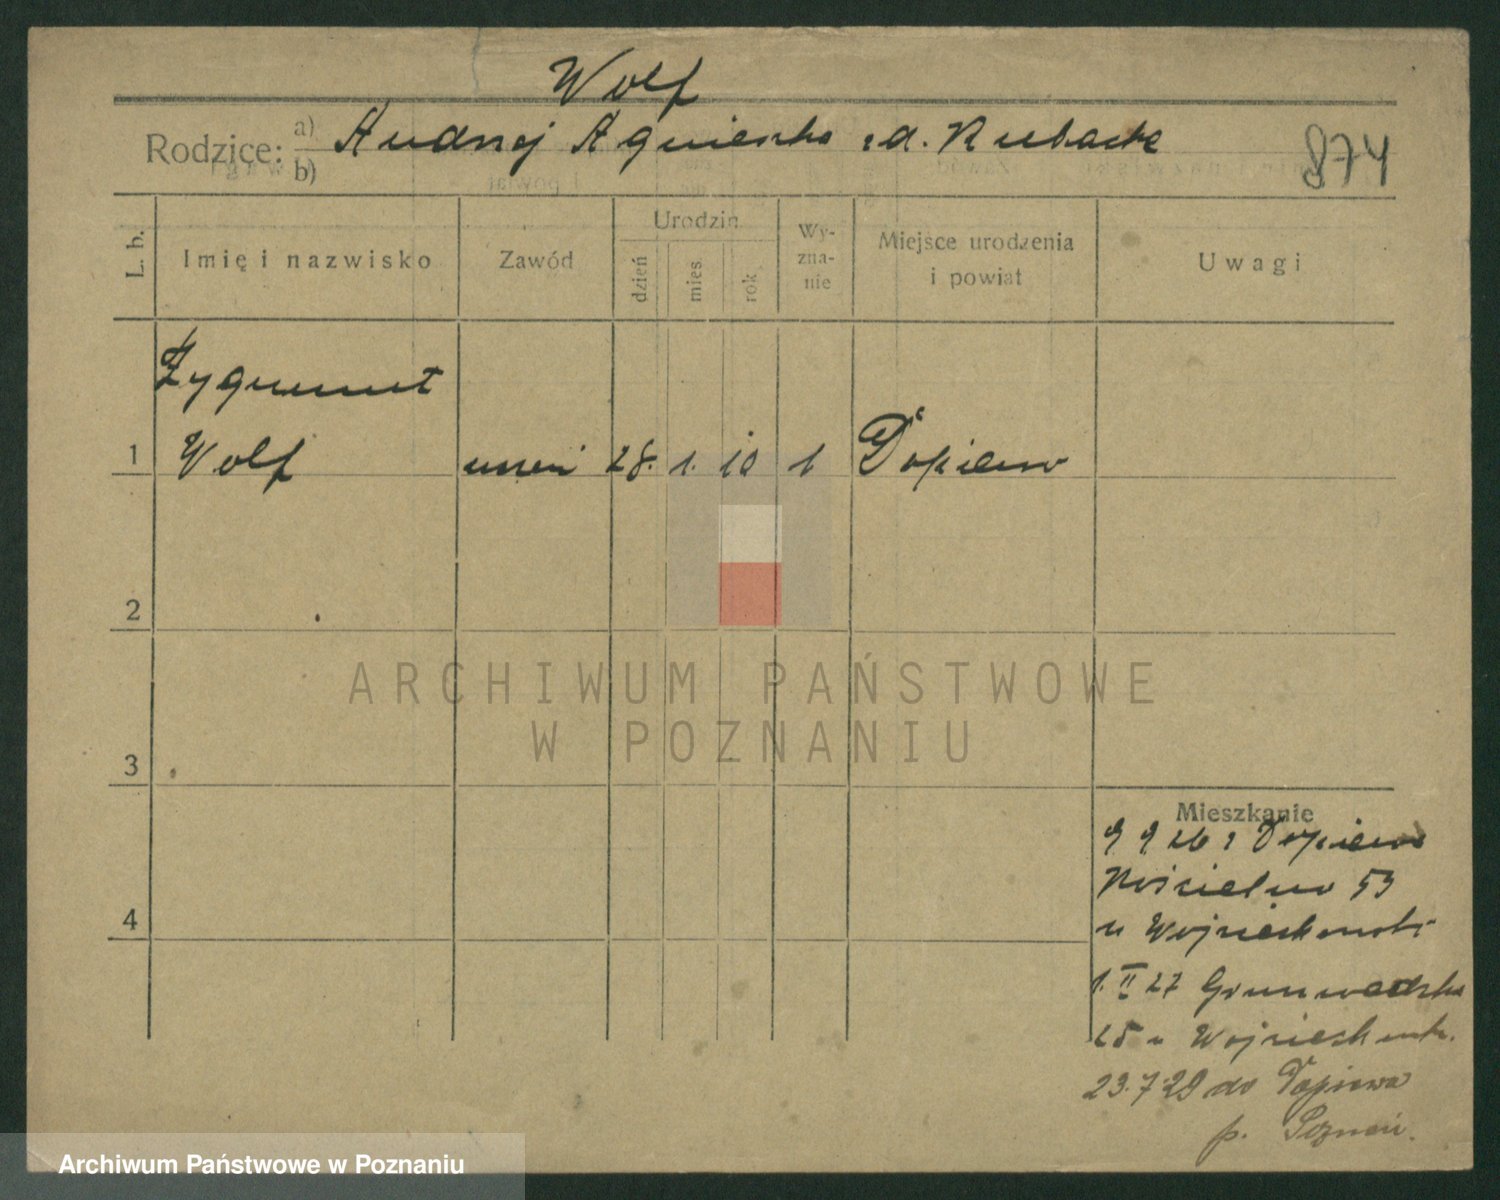 Wolf
Rodzice: a) Andrzej Agnieszka z d. Rubacka
b)
874
L. b. Imię i nazwisko Zawód Urodzin dzień mies. rok Wy-zna-nie Miejsce urodzenia i powiat Uwagi
Zygmunt
1 Wolf uczeń 28. 1. 10 1 Dopiewo
2
3
4
Mieszkanie
9 9 26 z Dopiewa
Kościelna 53
u Wojciechowski
1. II 27 Grunwaldzka
25 u Wojciechowsk.
23.7.28 do Dopiewa
p. Poznań.
ARCHIWUM PAŃSTWOWE
W POZNANIU
Archiwum Państwowe w Poznaniu